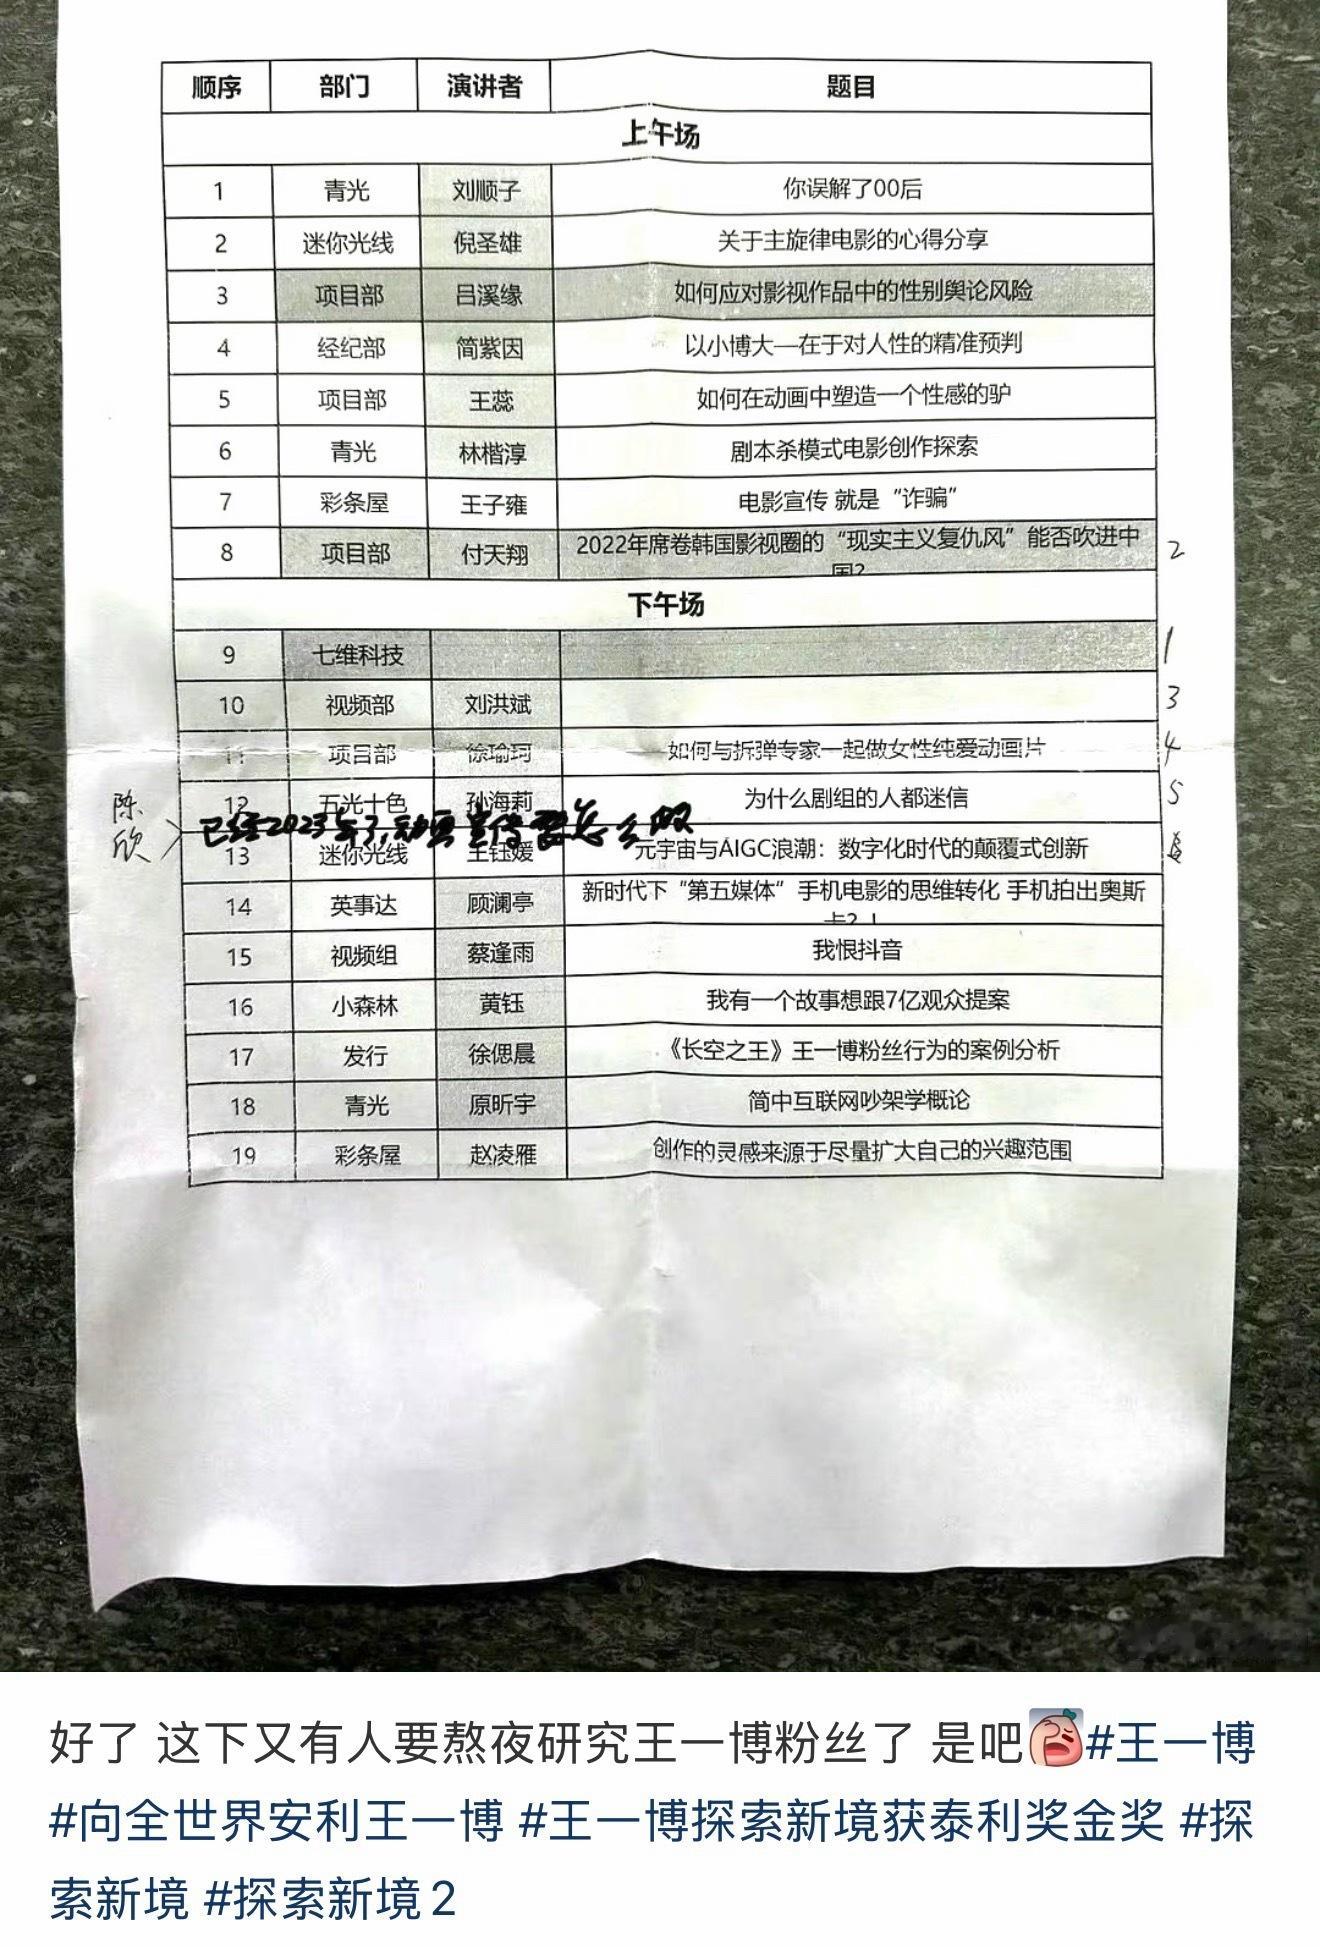 顺序 部门 演讲者 题目
上午场
1 青光 刘顺子 你误解了00后
2 迷你光线 倪圣雄 关于主旋律电影的心得分享
3 项目部 吕溪缘 如何应对影视作品中的性别舆论风险
4 经纪部 简紫因 以小博大—在于对人性的精准预判
5 项目部 王蕊 如何在动画中塑造一个性感的驴
6 青光 林楷淳 剧本杀模式电影创作探索
7 彩条屋 王子雍 电影宣传 就是“诈骗”
8 项目部 付天翔 2022年席卷韩国影视圈的“现实主义复仇风”能否吹进中 2
国?
下午场
9 七维科技 1
10 视频部 刘洪斌 3
11 项目部 徐瑜珂 如何与拆弹专家一起做女性纯爱动画片 4
12 五光十色 孙海莉 为什么剧组的人都迷信 5
陈欣 已经2023年了,动画宣传要怎么做
13 迷你光线 王钰媛 元宇宙与AIGC浪潮：数字化时代的颠覆式创新
14 英事达 顾澜亭 新时代下“第五媒体”手机电影的思维转化 手机拍出奥斯
卡?！
15 视频组 蔡逢雨 我恨抖音
16 小森林 黄钰 我有一个故事想跟7亿观众提案
17 发行 徐偲晨 《长空之王》王一博粉丝行为的案例分析
18 青光 原昕宇 简中互联网吵架学概论
19 彩条屋 赵凌雁 创作的灵感来源于尽量扩大自己的兴趣范围
好了 这下又有人要熬夜研究王一博粉丝了 是吧#王一博
#向全世界安利王一博 #王一博探索新境获泰利奖金奖 #探
索新境 #探索新境2